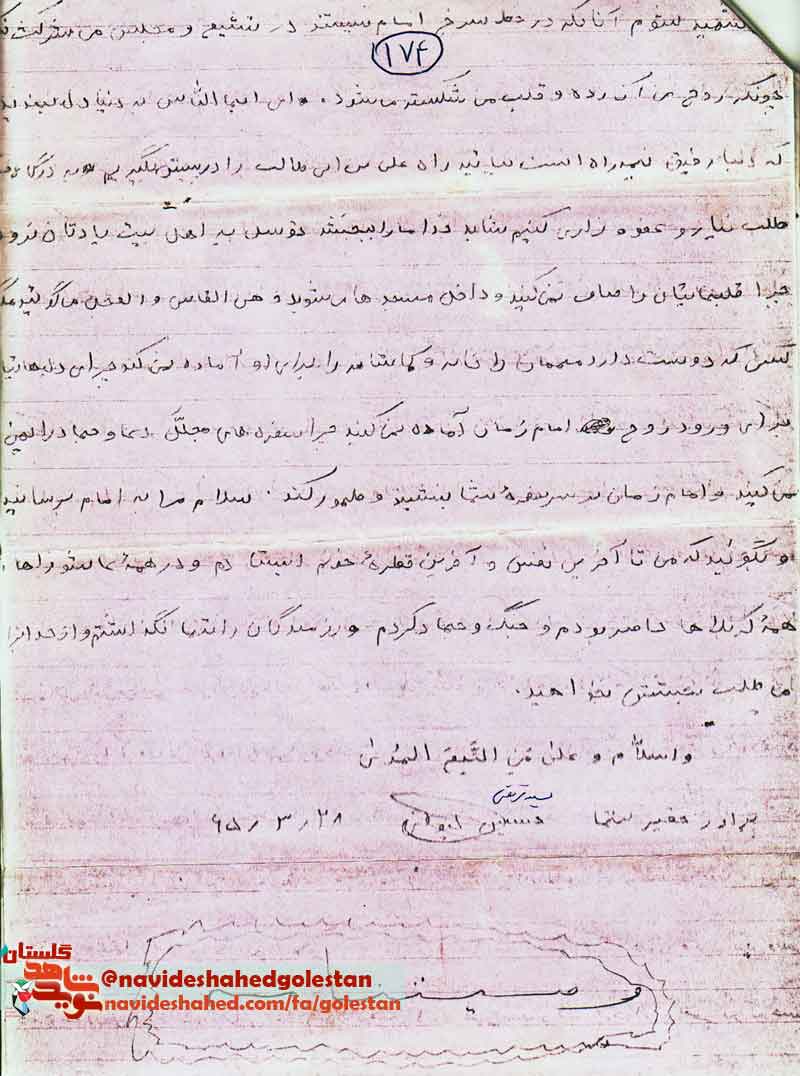 شهید شوم آنانکه در خط سرخ امام نیستند در تشییع و مجلس من شرکت
۱۷۴
چونکه روح من آزرده و قلب من شکسته میشود. ای ایها الناس به دنیا دل نبندید
که دنیا رفیق نیمه راه است بیائید راه علی بن ابی طالب را در پیش بگیریم به درگاه
طلب نیاز و عفوه زاری کنیم شاید خدا ما را ببخشد توسل به اهل بیت یادتان نرود
چرا قلبهایتان را صاف نمی‌کنید و داخل مسجد ها میشوید
کسی که دوست دارد مهمان را خانه و کاشانه را برای او آماده می کند چرا دلهایتان
برای ورود روح امام زمان آماده نمی کنید چرا سفره های مجلل را
نمی کنید و امام زمان بر سر سفره شما بنشیند و ظهور کند. سلام مرا به امام برسانید
و بگوئید که من تا آخرین نفس و آخرین قطره خونم ایستادم و در همه عاشوراها
همه کربلاها حاضر بودم و جنگ و جهاد کردم و رزمندگان را تنها نگذاشتم و از خدا برای
من طلب بخشش بخواهید.
والسلام و علی من التبع الهدی
سید تقی
برادر حقیر شما حسین ۶۵/۳/۲۸
وصیتنامه
گلستان
نوید شاهد
@navideshahedgolestan
navideshahed.com/fa/golestan